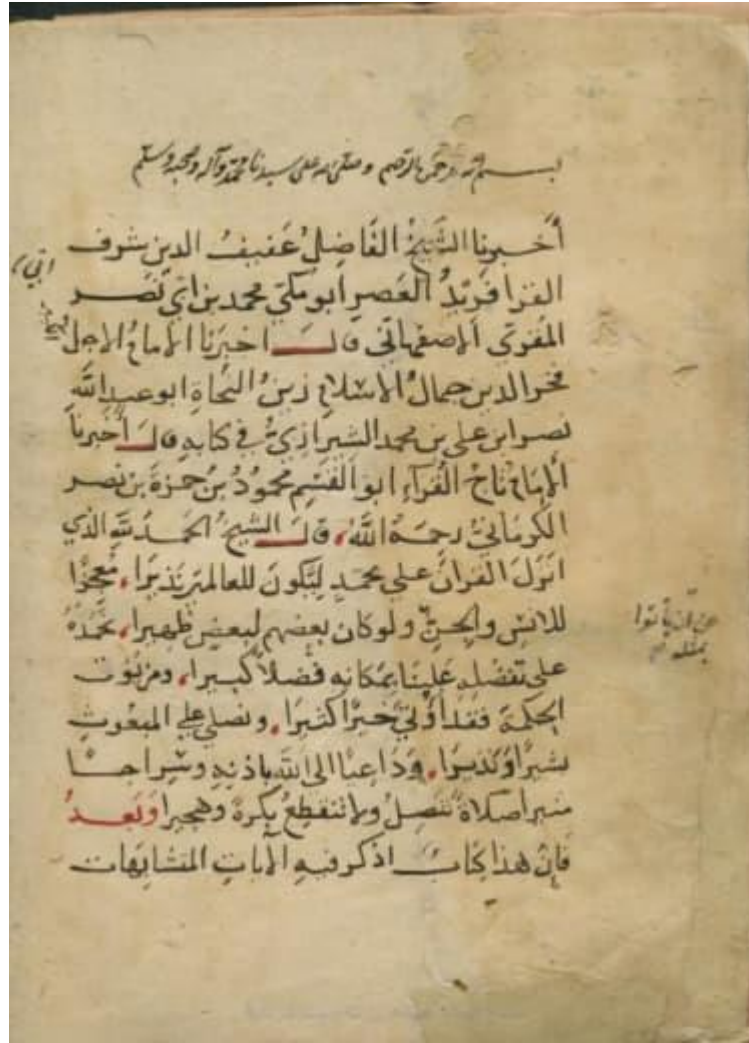 بسم الله الرحمن الرحيم وصلى الله على سيدنا محمد وآله وصحبه وسلم
أخبرنا الشيخ الفاضل عفيف الدين شرف
القرا فريد العصر أبو مكي محمد بن ابي نصر
المقري الاصفهاني قال اخبرنا الامام الاجل
فخر الدين جمال الاسلام زين النحاة ابو عبد الله
نصر ابن علي بن محمد الشيرازي في كتابه قال أخبرنا
الإمام تاج القرآء ابو القسم محمود بن حمزة بن نصر
الكرماني رحمة الله، قال الشيخ الحمد لله الذي
انزل القران على محمد ليكون للعالمين نذيرا، معجزا
للانس والجن ولو كان بعضهم لبعض ظهيرا، نحمده
على تفضله علينا بمكانه فضلا كبيرا، ومن يوت
الحكمة فقد أوتي خيرا كثيرا، ونصلي على المبعوث
بشيرا ونذيرا، وداعيا الى الله باذنه وسراجا
منيرا صلاة تتصل ولا تنقطع بكرة وهجيرا وبعد
فان هذا كتاب اذكر فيه الايات المتشابهات
عن ان يأتوا
بمثله